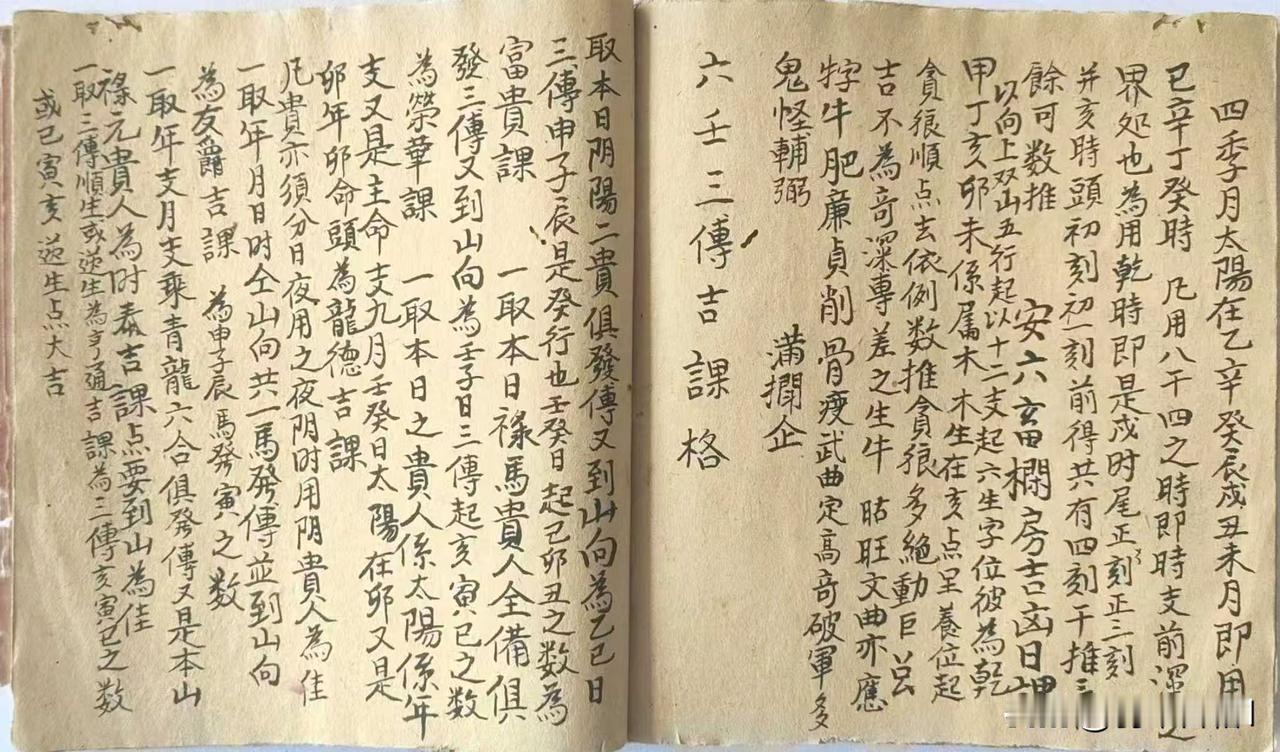 四季月太陽在乙辛癸辰戌丑未月即用
巳辛丁癸時 凡用八干四之時即時支前深之
界処也為用乾時即是戍时尾正刻正三刻
并亥時頭初刻初一刻前得共有四刻干推
餘可数推 安六畜欄房吉凶日課
以向上双山五行起以十二支起六生字位彼為乾
甲丁亥卯未係屬木木生在亥点呈養位起
貪狼順点去依例数推貪狼多絶動巨
吉不為奇深專差之生牛 旺文曲亦應
牸牛肥廉貞削骨瘦武曲定高奇破軍多
鬼怪輔弼 滿企
六壬三傳吉課格
取本日阴陽二貴俱發傳又到山向為乙巳日
三傳申子辰是癸行也壬癸日起己卯丑之數為
富貴課 一取本日禄馬貴人全備俱
發三傳又到山向為壬子日三傳起亥寅已之數
為榮華課 一取本日之貴人係太陽係年
支又是主命支九月壬癸日太陽在卯又是
卯年卯命頭為龍德吉課
凡貴亦須分日夜用之夜阴时用阴貴人為佳
一取年月日时仝山向共一馬發傳並到山向
為友爵吉課 為申子辰馬發寅之數
一取年支月支乘青龍六合俱發傳又是本山
禄元貴人為时泰吉課点要到山為佳
一取三傳順生或逆生為亨通吉課為三傳亥寅已之數
或已寅亥逆生点大吉